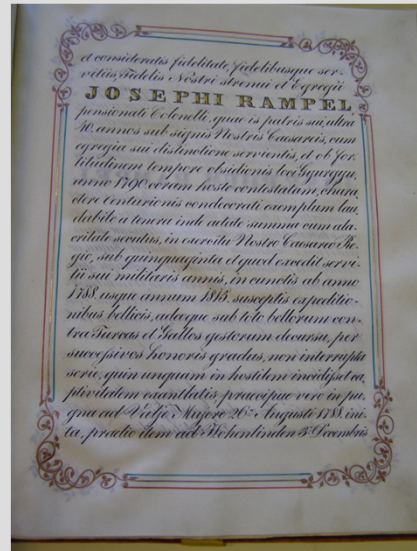 et consideratis fidelitate, fidelibusque ser-
vitiis, Fidelis Nostri strenui et Egregii
JOSEPHI RAMPEL,
pensionati Colonelli, quae is patris sui, ultra
40. annos sub signis Nostris Caesareis, cum
egregia sui distinctione servientis, et ob for
titudinem tempore obsidionis loci Gyurgyu,
anno 1790. coram hoste contestatam, chara
ctere Centurionis condecorati exemplum lau,
dabile a tenera inde aetate summa cum ala
critate secutus, in exercitu Nostro Caesareo Re-
gio, sub quinquaginta et quod excedit servi-
tii sui militaris annis, in cunctis ab anno
1788. usque annum 1815. susceptis expeditio-
nibus bellicis, adeoque sub toto bellorum con-
tra Turcas et Gallos gestorum decursu, per
successivos honoris gradus, non interrupta
serie, quin unquam in hostilem incidisset ca,
ptivitatem exantlatis, praecipue vero in pu,
gna ad Vielje Majere 26a Augusti 1788. ini-
ta, praelio item ad Hohenlinden 3a Decembris